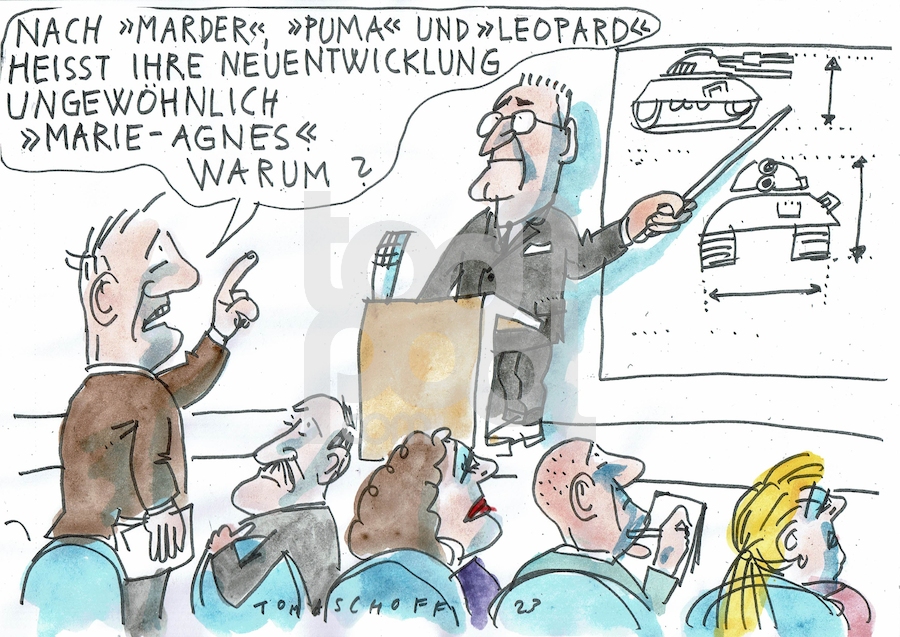 NACH »MARDER«, »PUMA« UND »LEOPARD«
HEISST IHRE NEUENTWICKLUNG
UNGEWÖHNLICH
»MARIE-AGNES«
WARUM?
TOMASCHOFF 23